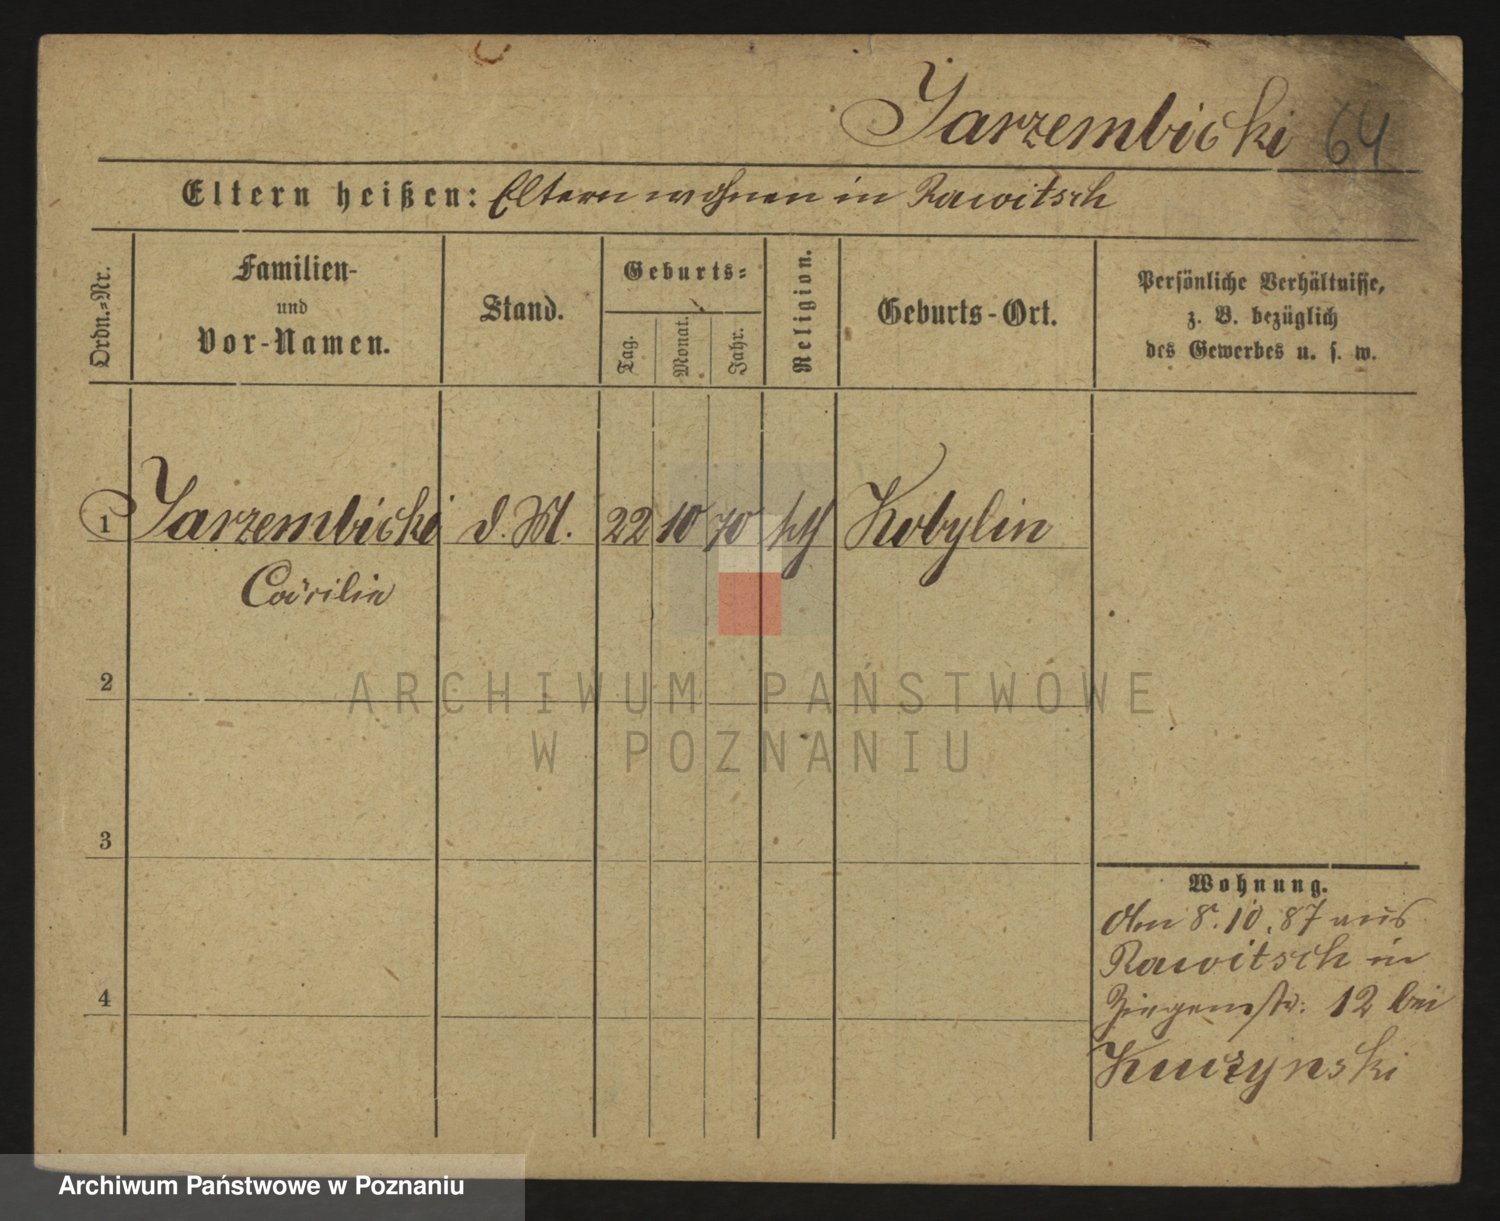 Jarzembicki 64
Eltern heißen: Eltern wohnen in Rawitsch
Ordn.-Nr.
Familien-
und
Vor-Namen.
Stand.
Geburts-
Tag.
Monat.
Jahr.
Religion.
Geburts-Ort.
Persönliche Verhältnisse,
z. B. bezüglich
des Gewerbes u. s. w.
1 Jarzembicki d. M. 22 10 70 kth Kobylin
Cäcilia
2
ARCHIWUM PAŃSTWOWE
W POZNANIU
3
Wohnung.
Am 8. 10. 87 aus
Rawitsch in
4
Ziegenstr: 12 bei
Kuczynski
Archiwum Państwowe w Poznaniu